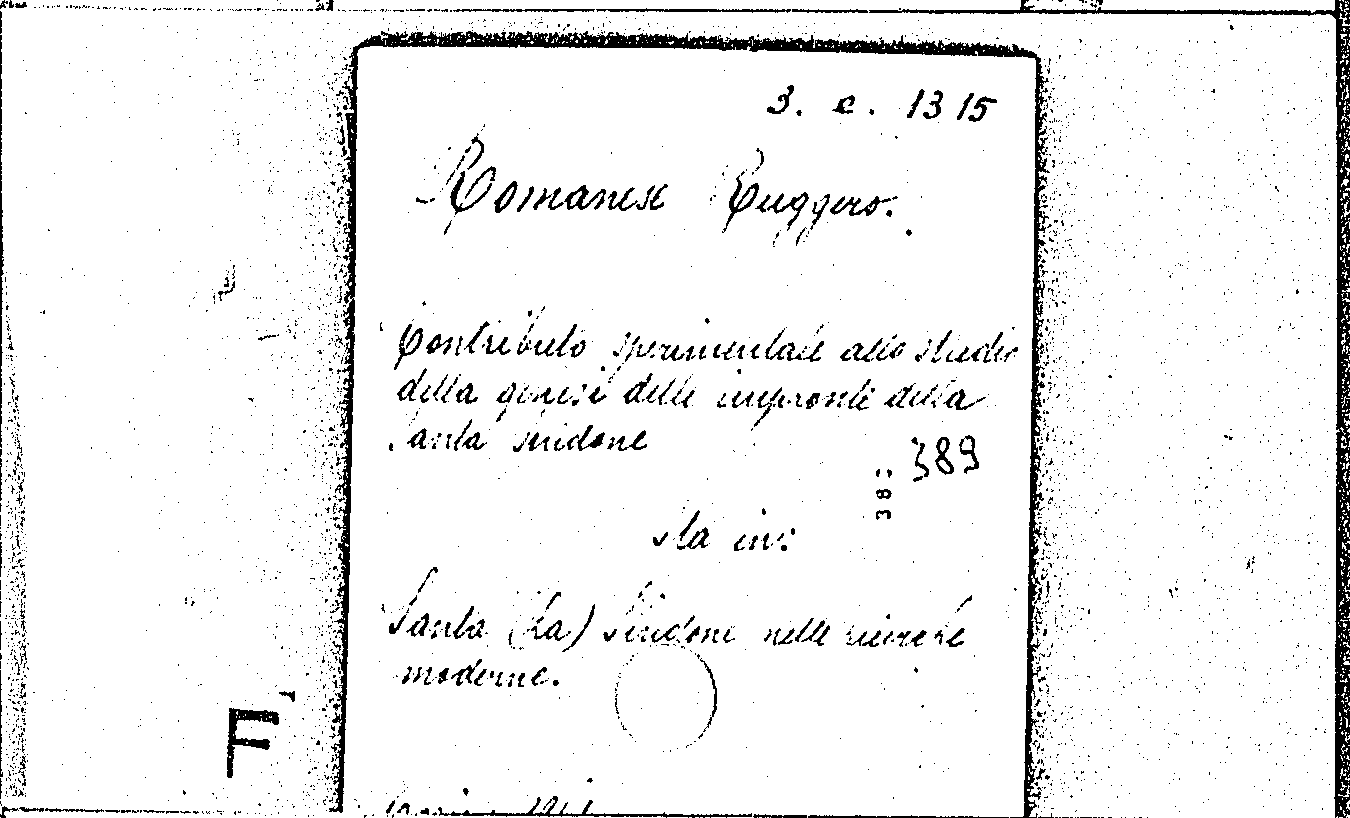 3. c. 1315
Romanese Ruggero.
Contributo sperimentale allo studio
della genesi delle impronte della
Santa sindone
389
389
sta in:
Santa (La) Sindone nelle ricerche
moderne.
F